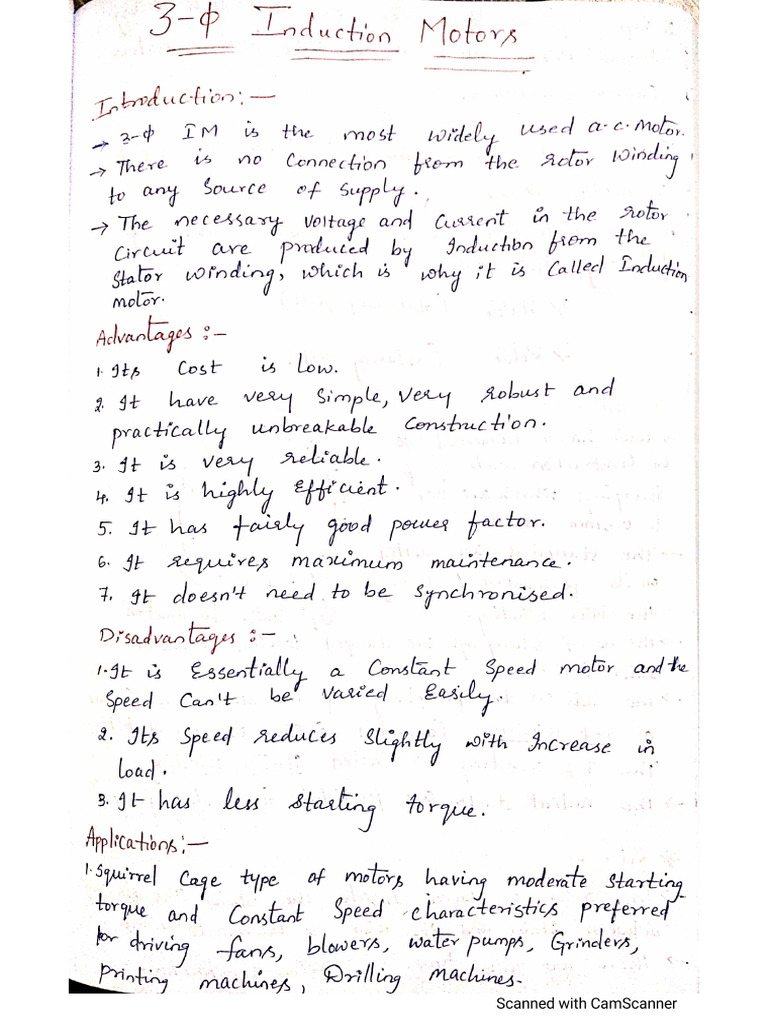 3-ϕ Induction Motors
Introduction:-
→ 3-ϕ IM is the most widely used a.c. motor.
→ There is no connection from the rotor winding
to any source of supply.
→ The necessary voltage and current in the rotor
circuit are produced by Induction from the
stator winding, which is why it is called Induction
motor.
Advantages:-
1. Its cost is low.
2. It have very simple, very robust and
practically unbreakable construction.
3. It is very reliable.
4. It is highly efficient.
5. It has fairly good power factor.
6. It requires maximum maintenance.
7. It doesn't need to be synchronised.
Disadvantages:-
1. It is Essentially a constant speed motor and the
speed can't be varied easily.
2. Its speed reduces slightly with increase in
load.
3. It has less starting torque.
Applications:-
1. Squirrel cage type of motors having moderate starting
torque and constant speed characteristics preferred
for driving fans, blowers, water pumps, Grinders,
printing machines, Drilling machines.
Scanned with CamScanner